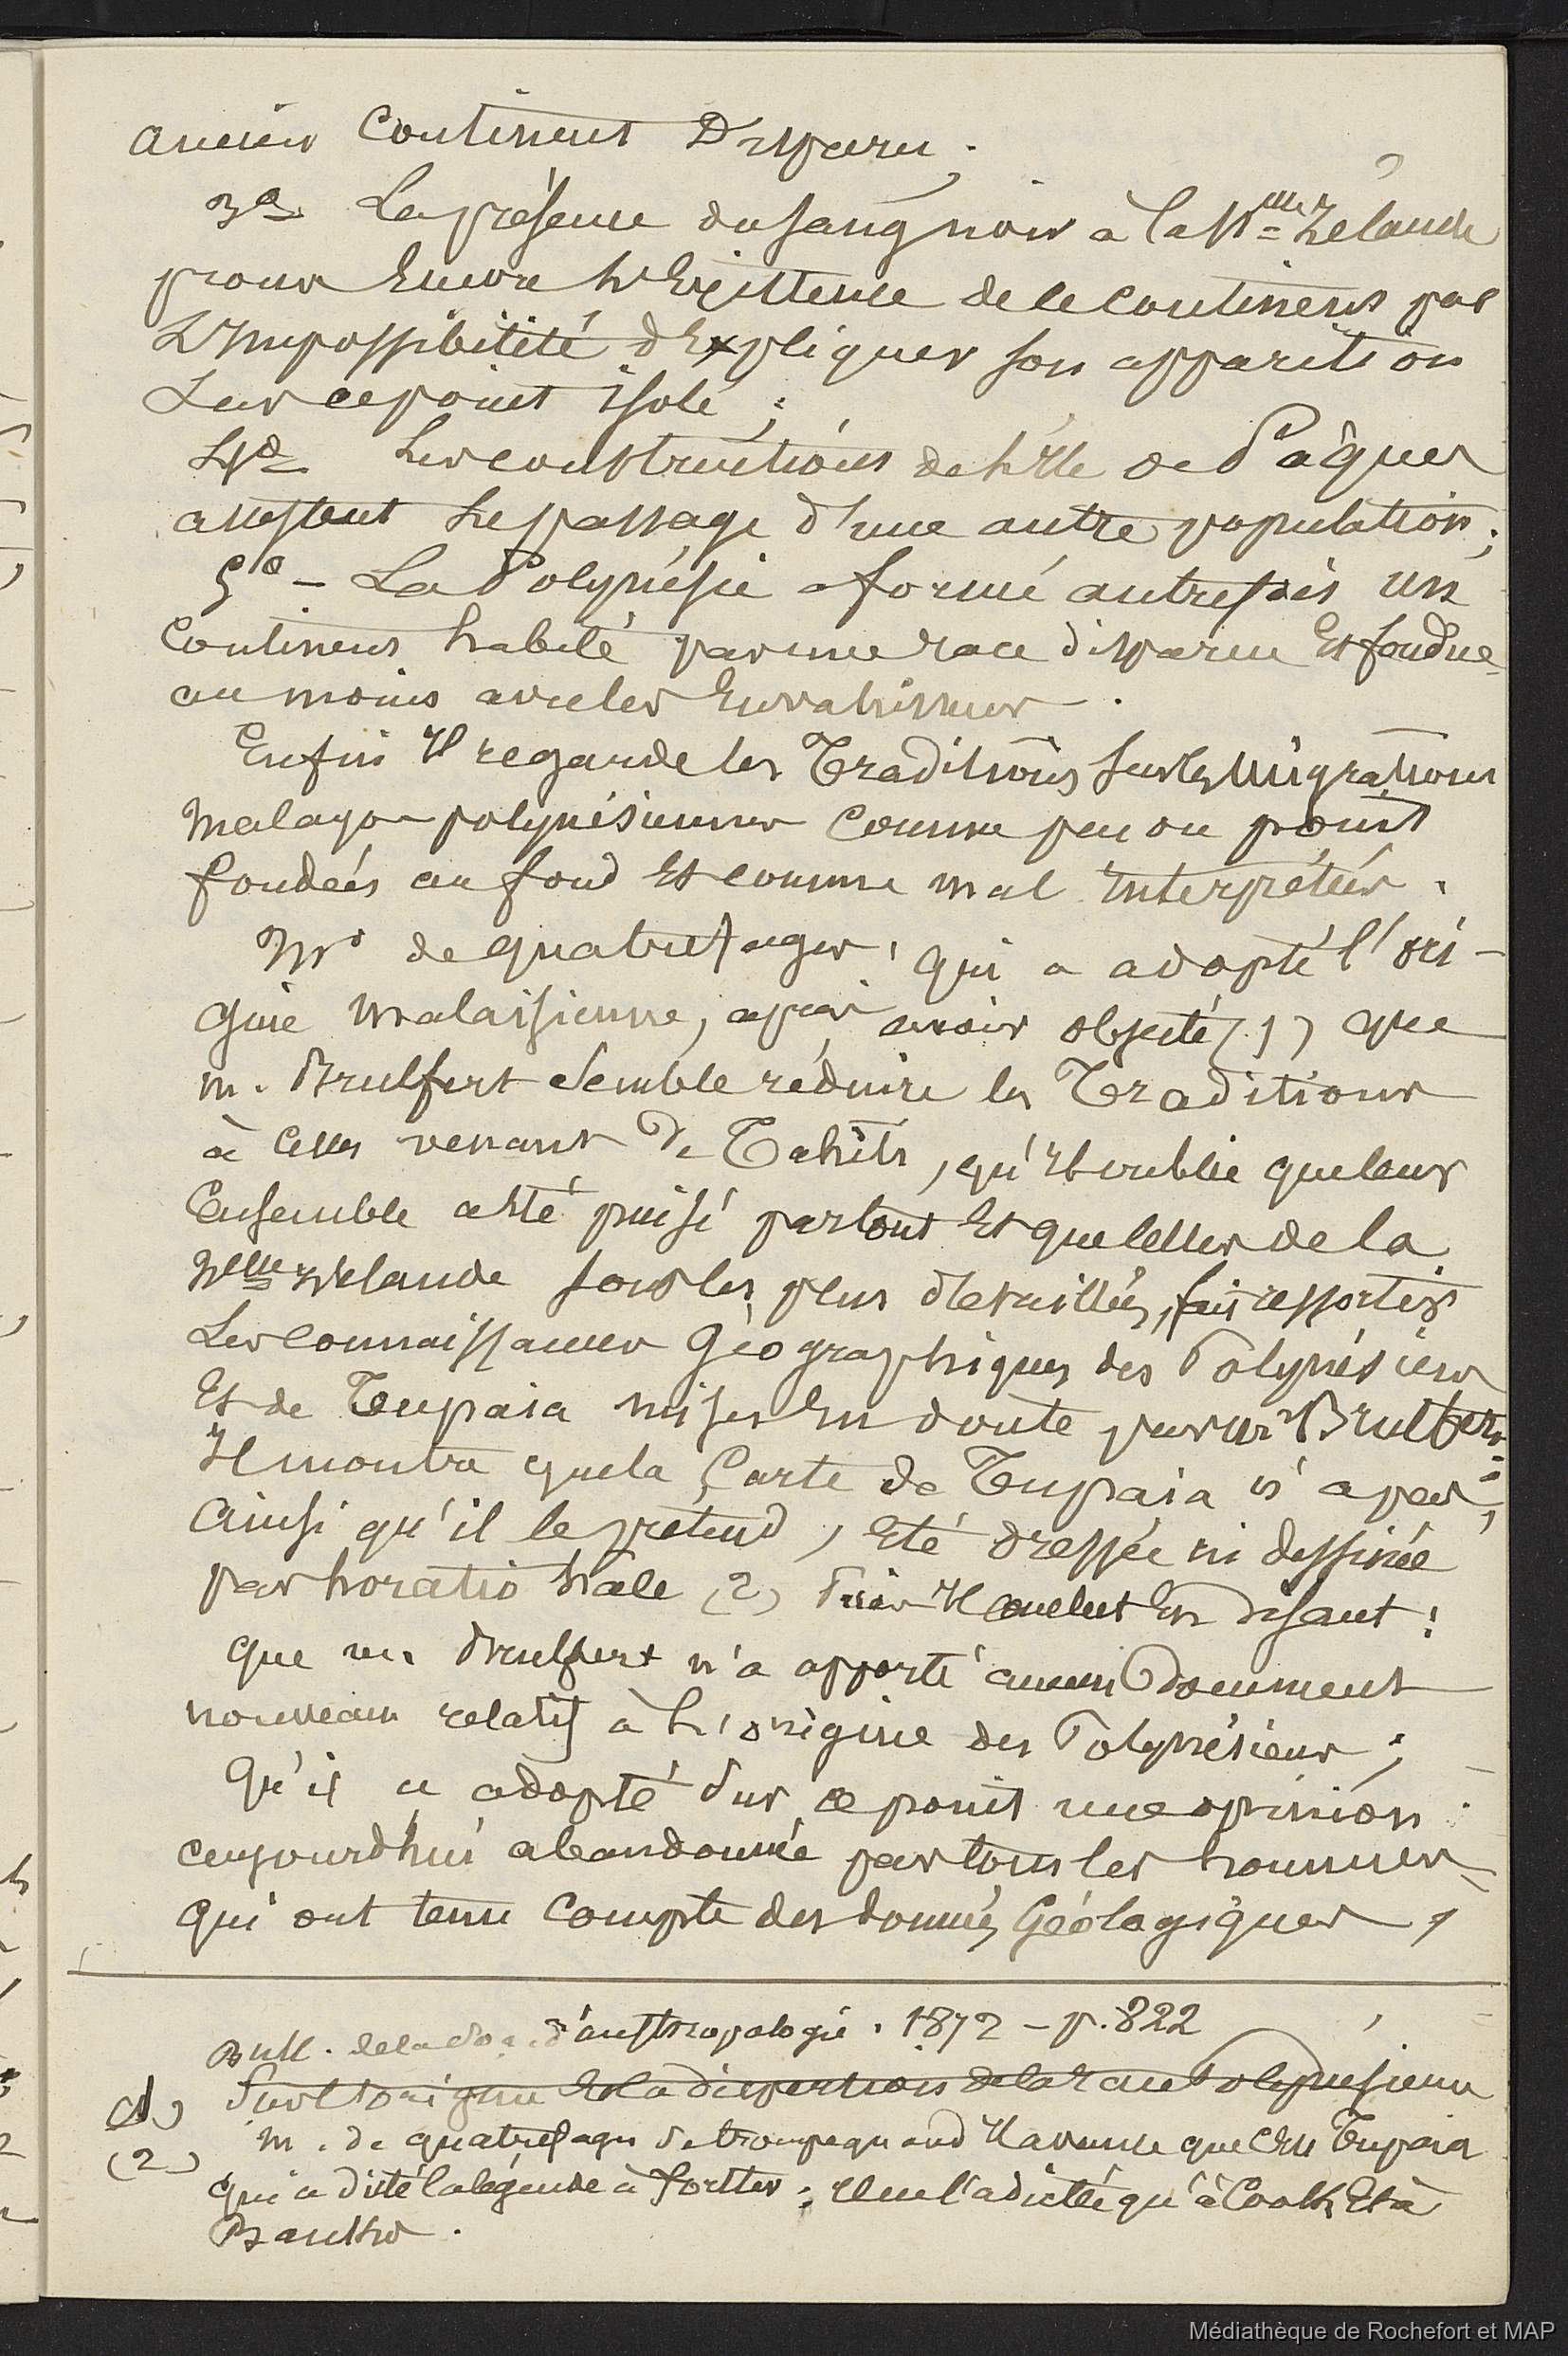 ancien Continent Disparu ;
3o La présence du sang noir à la Nlle Zélande
prouve Encore l'Existence de ce continent par
L'Impossibilité d'Expliquer son apparition
Sur ce point isolé ;
4o Les constructions de l'Ile de Pâques
attestent le passage d'une autre population ;
5o - La Polynésie a formé autrefois un
Continent habité par une race disparue Et fondue
au moins avec les Envahisseurs.
Enfin Il regarde les Traditions sur les Migrations
Malayo-polynésiennes comme peu ou point
fondées au fond Et comme mal interprétées.
Mr de quatrefages, qui a adopté l'ori-
gine malaisienne, après avoir objecté (1) que
m. Brulfert semble réduire les Traditions
à celles venant de Tahiti, qu'Il oublie que leur
Ensemble a été puisé partout Et que celles de la
Nelle Zélande sont les plus détaillées, fait ressortir
Les connaissances Géographiques des Polynésiens
Et de Tupaia mises En doute par mr Brulfert.
Il montre que la Carte de Tupaia n'a pas,
Ainsi qu'il le prétend, Eté dressée ni dessinée
par horatio hale (2) Puis Il conclut En disant :
que m. Brulfert n'a apporté aucun Document
nouveau relatif à l'origine des Polynésiens ;
Qu'il a adopté sur ce point une opinion
aujourd'hui abandonnée par tous les hommes
qui ont tenu compte des données Géologiques,
Bull. de la Soc. d'anthropologie. 1872 - p. 822
(1) Sur l'origine Et la dispersion de la race Polynésienne
(2) M. de quatrefages se trompe quand Il avance que c'est Tupaia
qui a dicté la légende à Forster ; Il ne l'a dictée qu'à Cook Et à
Banks.
Médiathèque de Rochefort et MAP